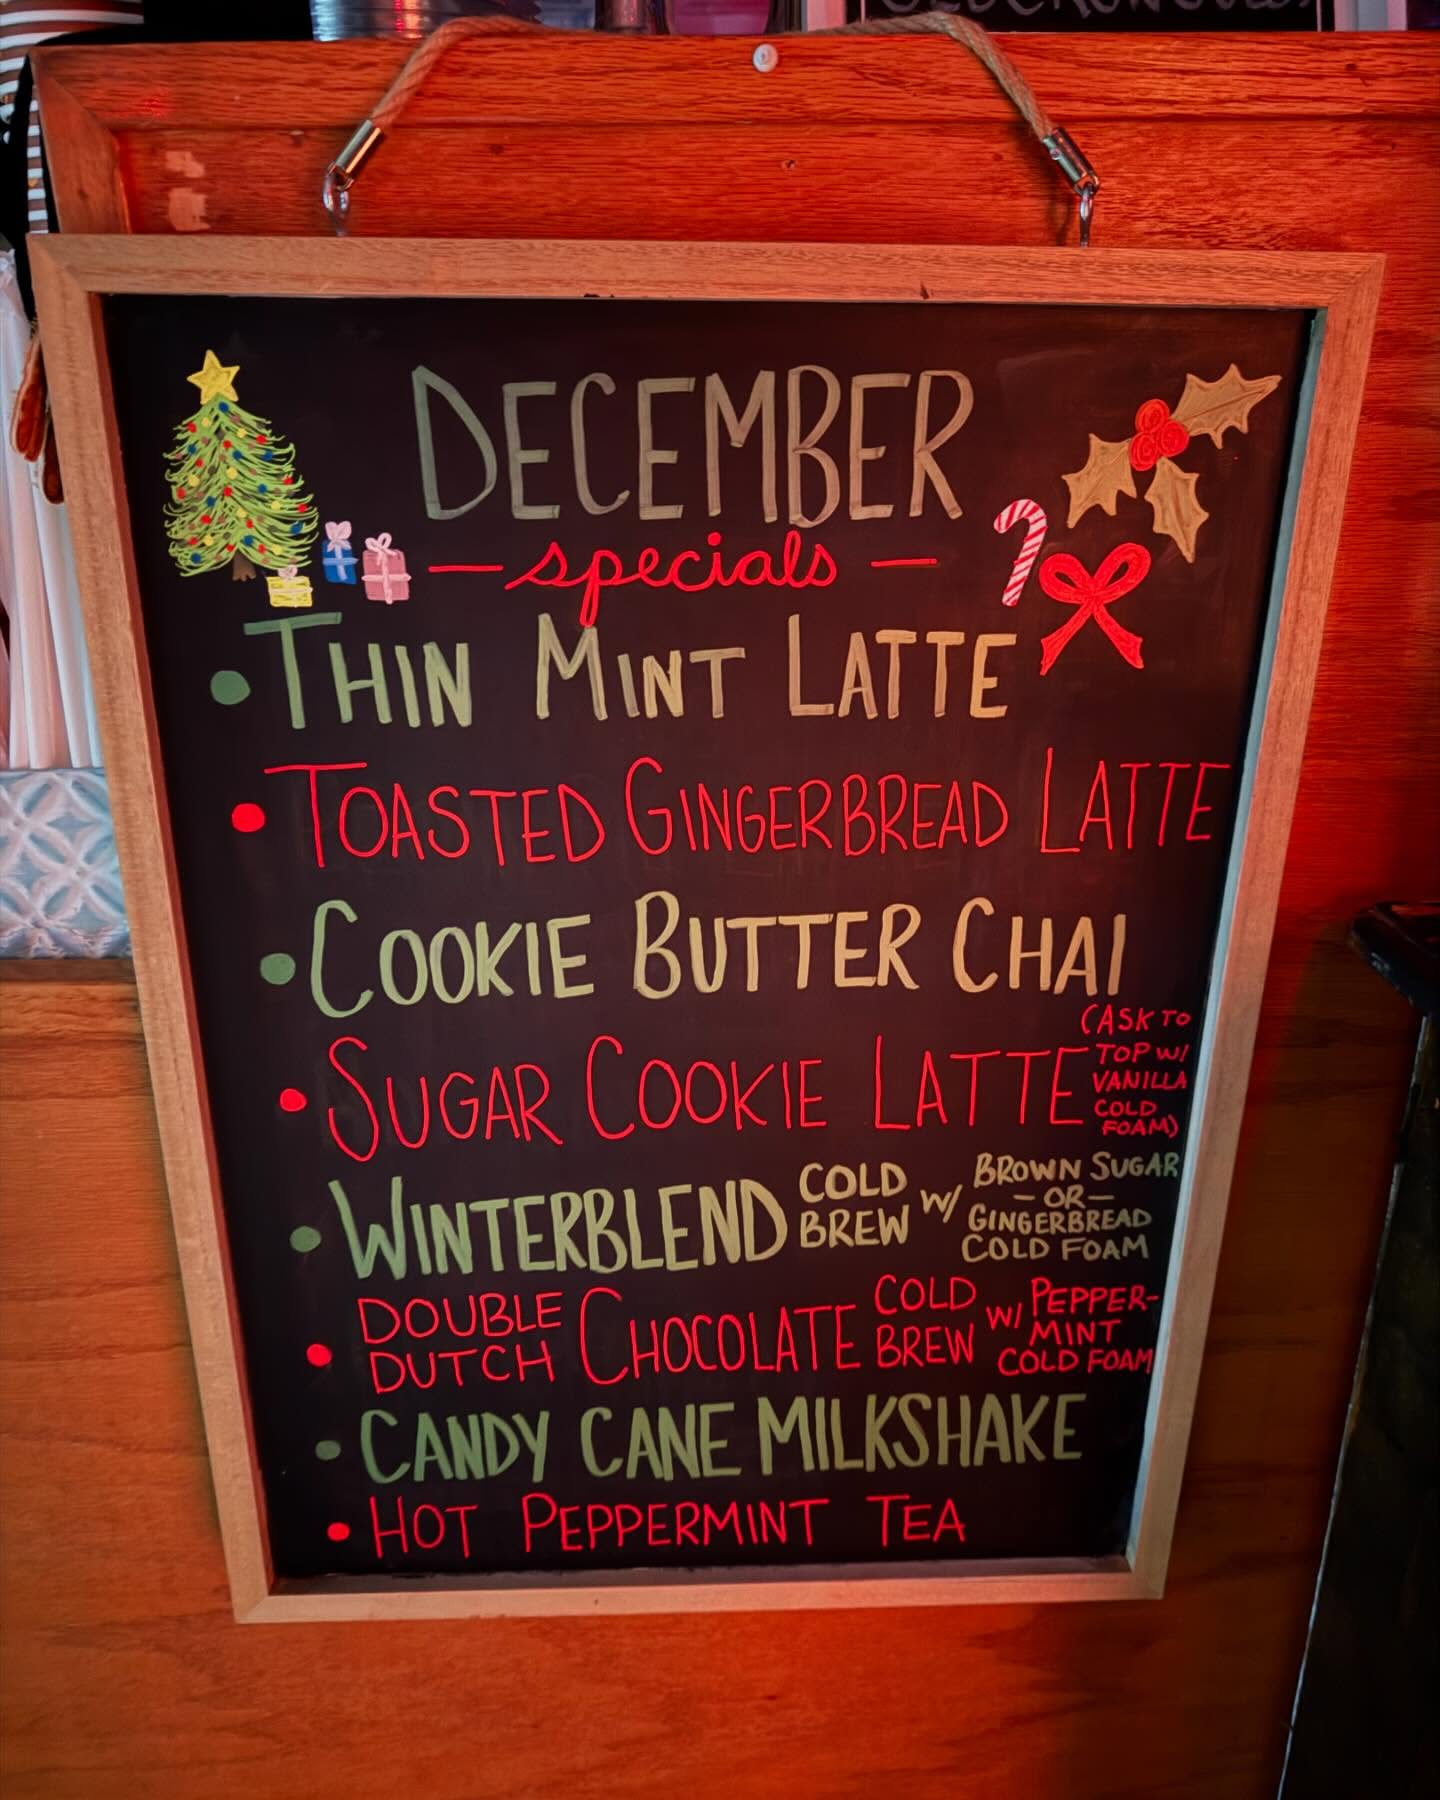 DECEMBER
— specials —
• THIN MINT LATTE
• TOASTED GINGERBREAD LATTE
• COOKIE BUTTER CHAI
• SUGAR COOKIE LATTE
(ASK TO
TOP W/
VANILLA
COLD
FOAM)
• WINTERBLEND COLD BREW W/ BROWN SUGAR
— OR —
GINGERBREAD
COLD FOAM
• DOUBLE DUTCH CHOCOLATE COLD BREW W/ PEPPER-
MINT
COLD FOAM
• CANDY CANE MILKSHAKE
• HOT PEPPERMINT TEA